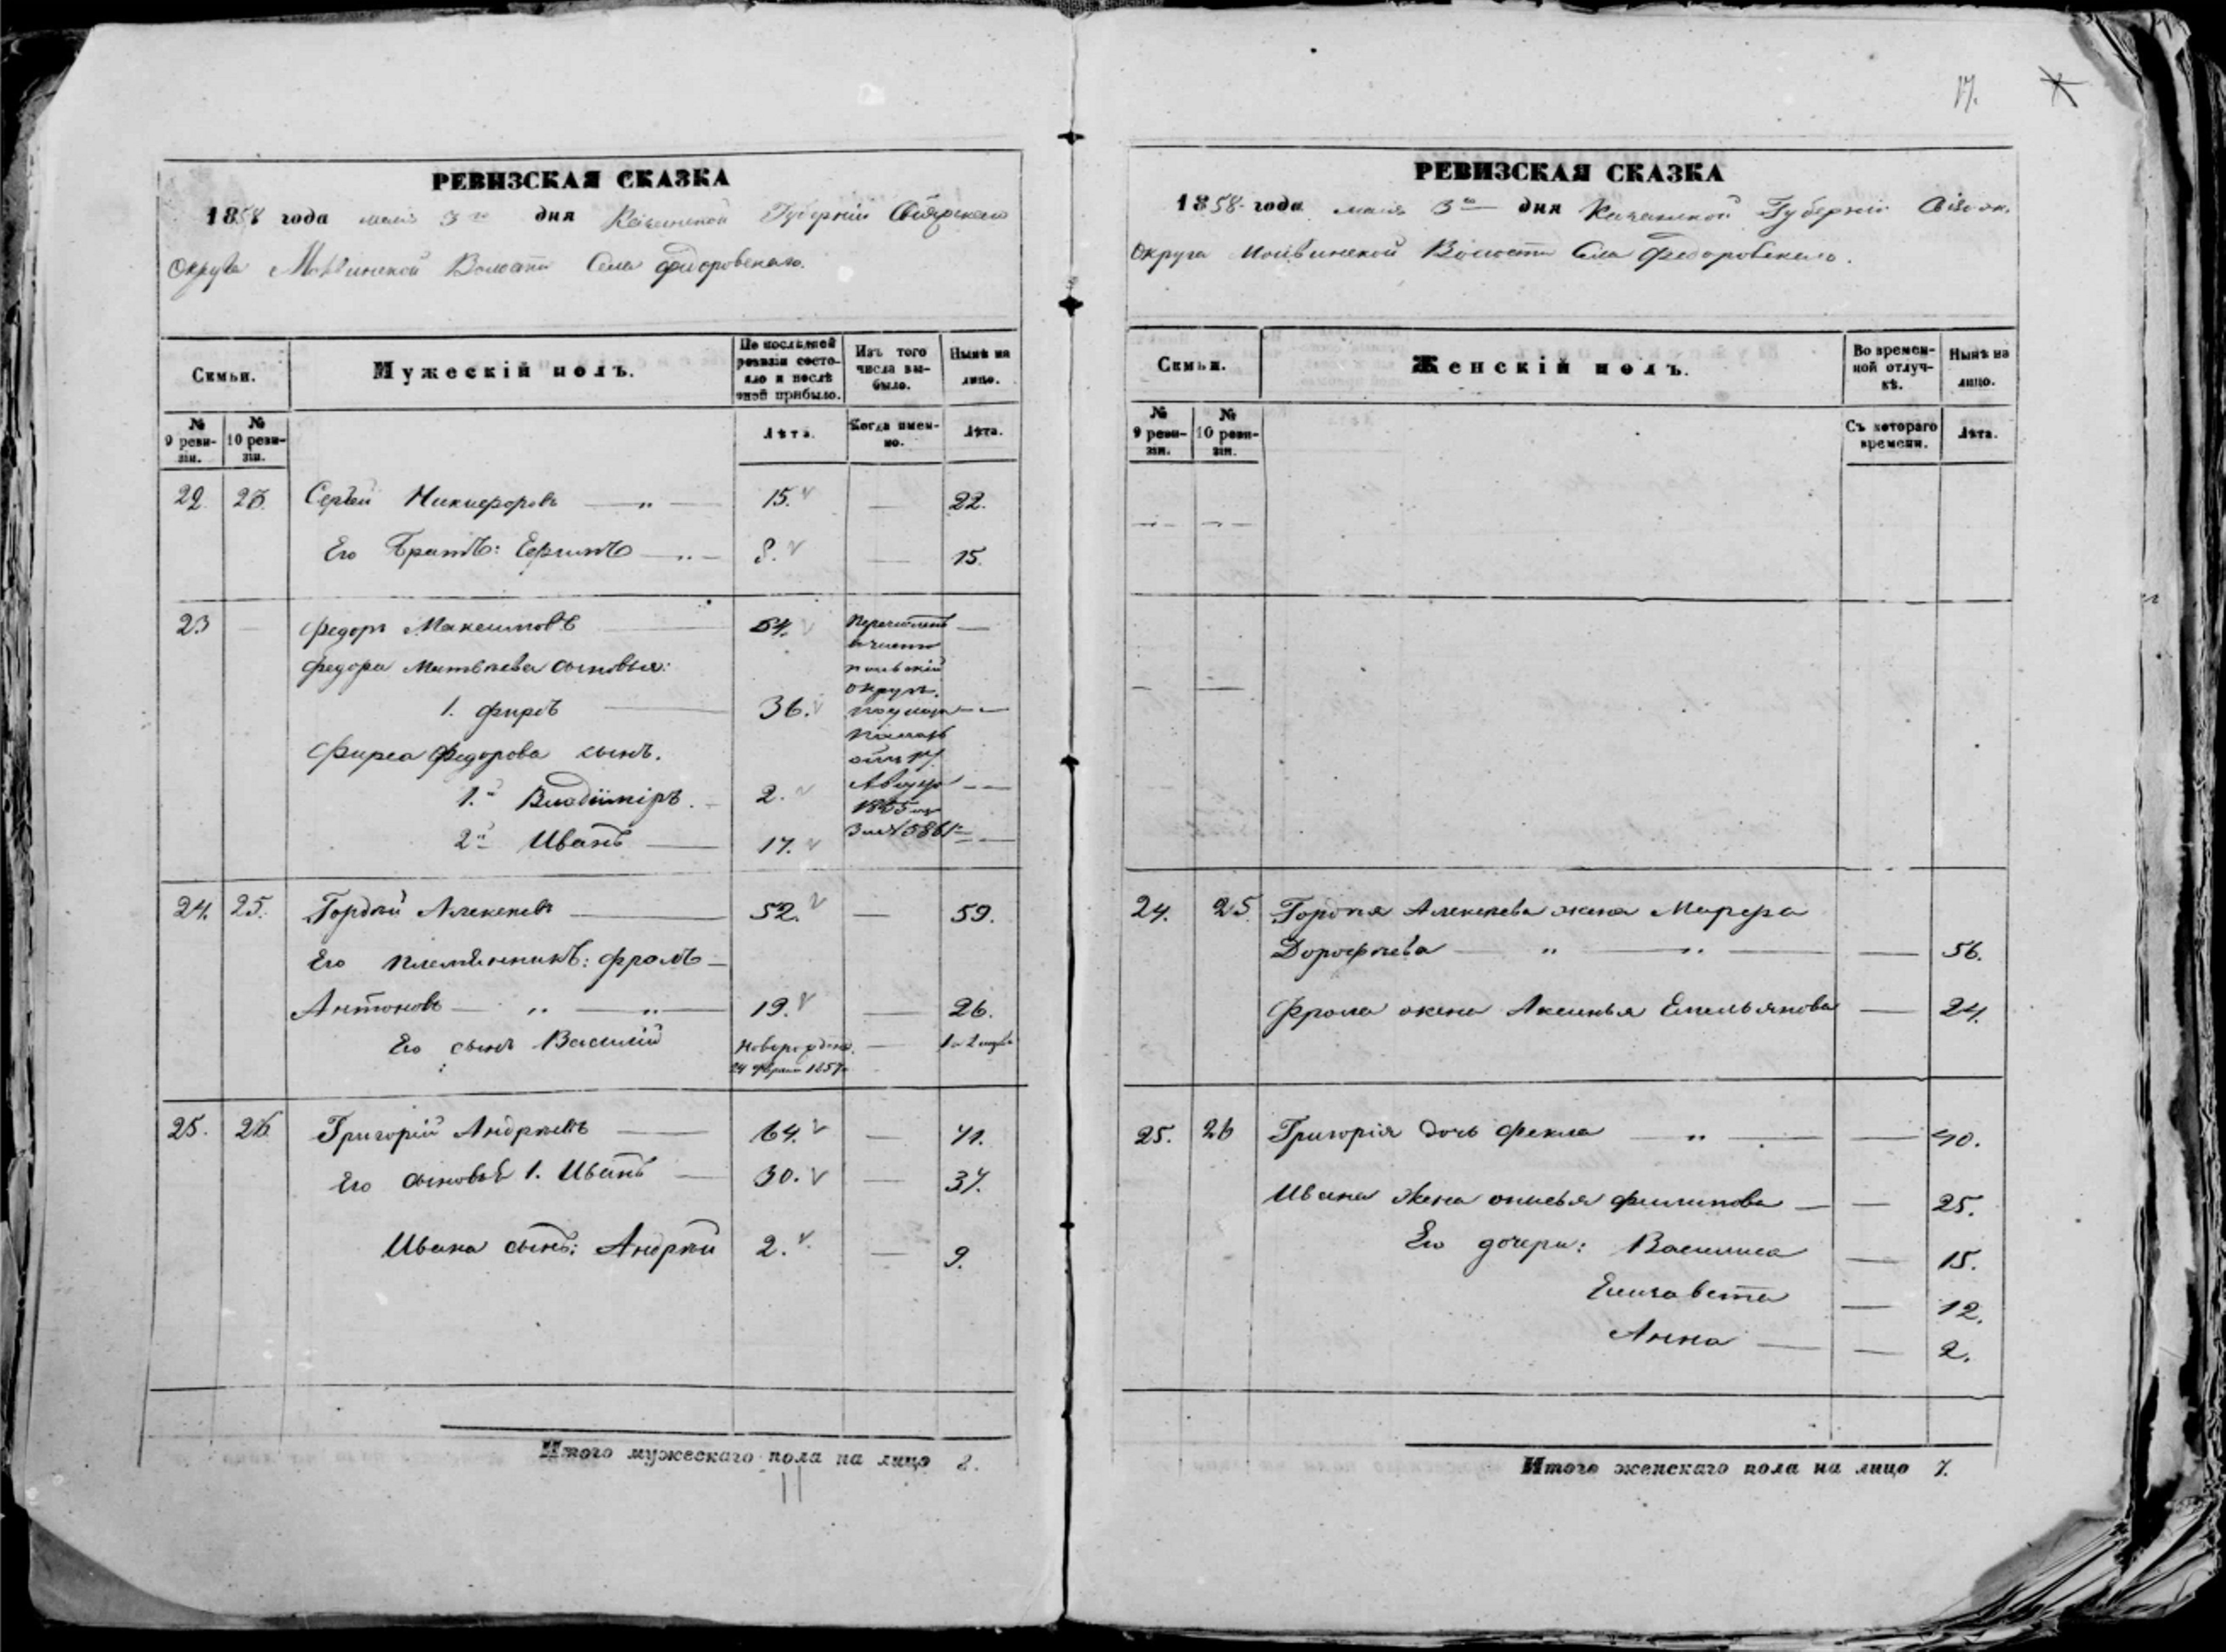 РЕВИЗСКАЯ СКАЗКА
1858 года маія 3го дня Казанской Губерніи Свіяжскаго
Округа Волости Села Федоровскаго.
Семьи.
Мужескій полъ.
По последней ревизіи состояло и после оной прибыло.
Изъ того числа выбыло.
Ныне на лицо.
№ 9 ревизіи.
№ 10 ревизіи.
Лѣта.
Когда именно.
Лѣта.
22. Сергѣй Никифоровъ — „ — 15. — 22.
Его Братъ: — „ — 8. — 15.
23 — Федоръ Максимовъ — 54. —
Федора Матвѣева сыновья:
1. Фирсъ — 36. — —
Фирса Федорова сынъ.
1й Владиміръ. — 2. — —
2й Иванъ — 17. — —
Перечисленъ
в
округъ.
24. 25. Гордѣй Алексѣевъ — 52. — 59.
Его племянникъ: Фролъ —
Антоновъ — „ — „ — 19. — 26.
Его сынъ Василій — 
24 Февраля 1857
25. 26 Григорій Андреевъ — 64. — 71.
Его сыновья 1. Иванъ — 30. — 37.
Ивана сынъ: Андрей 2. — 9.
Итого мужескаго пола на лицо 8.
11
17.
РЕВИЗСКАЯ СКАЗКА
1858 года маія 3го дня Казанской Губерніи
Округа Волости Села Федоровскаго.
Семьи.
Женскій полъ.
Во временной отлучкѣ.
Ныне на лицо.
№ 9 ревизіи.
№ 10 ревизіи.
Съ котораго времени.
Лѣта.
24. 25 Гордѣя Алексѣева жена Марфа
Дорофѣева — „ — „ — — 56.
Фрола жена Аксинья Емельянова — 24.
25. 26 Григорія дочь Фекла — „ — — 40.
Ивана жена Филипова — — 25.
Его дочери: Василиса — 15.
Елизавета — 12.
Анна — — 2.
Итого женскаго пола на лицо 7.